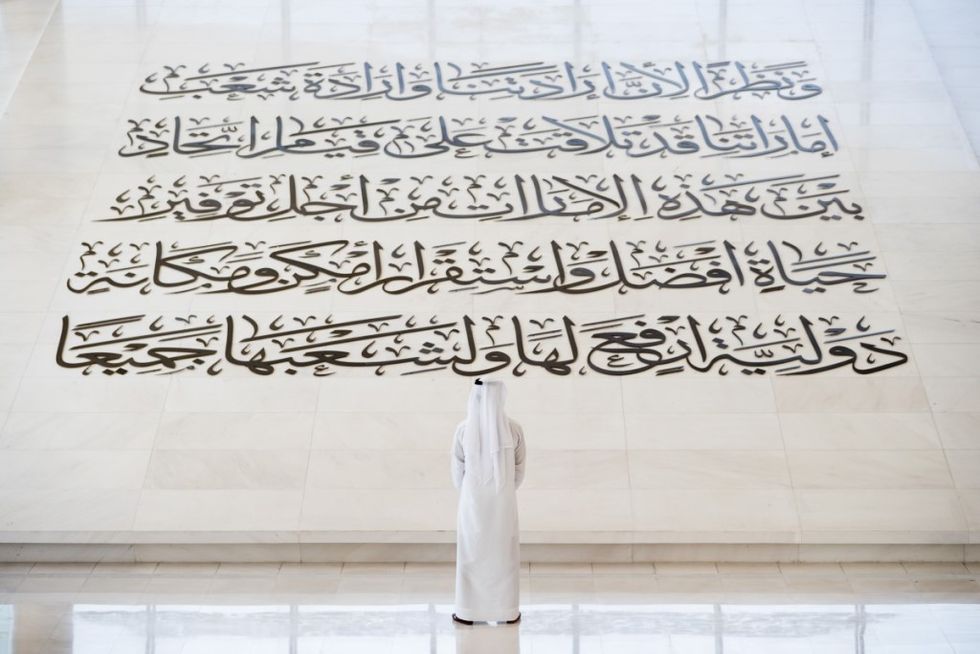 ونظراً لأنَّ إرادتنا وإرادة شعب
إماراتنا قد تلاقت على قيام اتَّحاد
بين هذه الإمارات من أجل توفير
حياة أفضل واستقرار أمكن ومكانة
دولية أرفع لها ولشعبها جميعاً